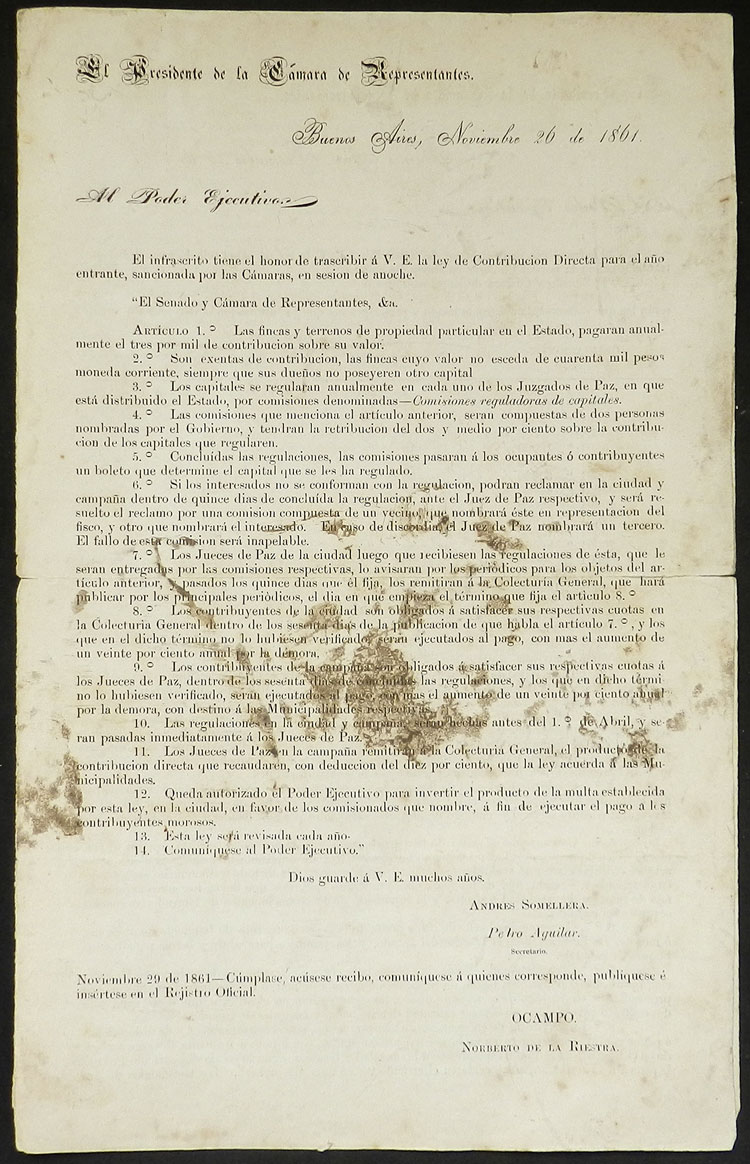 El Presidente de la Cámara de Representantes.
Buenos Aires, Noviembre 26 de 1861.
Al Poder Ejecutivo.
El infrascrito tiene el honor de trascribir á V. E. la ley de Contribucion Directa para el año
entrante, sancionada por las Cámaras, en sesion de anoche.
"El Senado y Cámara de Representantes, &a.
ARTÍCULO 1.º Las fincas y terrenos de propiedad particular en el Estado, pagaran anual-
mente el tres por mil de contribucion sobre su valor.
2.º Son exentas de contribucion, las fincas cuyo valor no esceda de cuarenta mil pesos
moneda corriente, siempre que sus dueños no poseyeren otro capital
3.º Los capitales se regularan anualmente en cada uno de los Juzgados de Paz, en que
está distribuido el Estado, por comisiones denominadas—Comisiones reguladoras de capitales.
4.º Las comisiones que menciona el artículo anterior, seran compuestas de dos personas
nombradas por el Gobierno, y tendran la retribucion del dos y medio por ciento sobre la contribu-
cion de los capitales que regularen.
5.º Concluídas las regulaciones, las comisiones pasaran á los ocupantes ó contribuyentes
un boleto que determine el capital que se les ha regulado.
6.º Si los interesados no se conforman con la regulacion, podran reclamar en la ciudad y
campaña dentro de quince dias de concluída la regulacion, ante el Juez de Paz respectivo, y será re-
suelto el reclamo por una comision compuesta de un vecino, que nombrará éste en representacion del
fisco, y otro que nombrará el interesado. En caso de discordia, el Juez de Paz nombrará un tercero.
El fallo de esta comision será inapelable.
7.º Los Jueces de Paz de la ciudad luego que recibiesen las regulaciones de ésta, que le
seran entregadas por las comisiones respectivas, lo avisaran por los periódicos para los objetos del ar-
tículo anterior, y pasados los quince dias que él fija, los remitirán á la Colecturía General, que hará
publicar por los principales periódicos, el dia en que empieza el término que fija el articulo 8.º
8.º Los contribuyentes de la ciudad son obligados á satisfacer sus respectivas cuotas en
la Colecturía General dentro de los sesenta dias de la publicacion de que habla el artículo 7.º, y los
que en el dicho término no lo hubiesen verificado, serán ejecutados al pago, con mas el aumento de
un veinte por ciento anual por la démora.
9.º Los contribuyentes de la campaña son obligados á satisfacer sus respectivas cuotas á
los Jueces de Paz, dentro de los sesenta dias de concluidas las regulaciones, y los que en dicho térmi-
no lo hubiesen verificado, seran ejecutados al pago, con mas el aumento de un veinte por ciento anual
por la demora, con destino á las Municipalidades respectivas.
10. Las regulaciones en la ciudad y campaña, seran hechas antes del 1.º de Abril, y se-
ran pasadas inmediatamente á los Jueces de Paz.
11. Los Jueces de Paz en la campaña remitirán á la Colecturía General, el producto de la
contribucion directa que recaudaren, con deduccion del diez por ciento, que la ley acuerda á las Mu-
nicipalidades.
12. Queda autorizado el Poder Ejecutivo para invertir el producto de la multa establecida
por esta ley, en la ciudad, en favor de los comisionados que nombre, á fin de ejecutar el pago á los
contribuyentes morosos.
13. Esta ley será revisada cada año.
14. Comuníquese al Poder Ejecutivo."
Dios guarde á V. E. muchos años.
ANDRES SOMELLERA.
Pedro Aguilar.
Secretario.
Noviembre 29 de 1861—Cúmplase, acúsese recibo, comuníquese á quienes corresponde, publíquese é
insértese en el Rejistro Oficial.
OCAMPO.
NORBERTO DE LA RIESTRA.